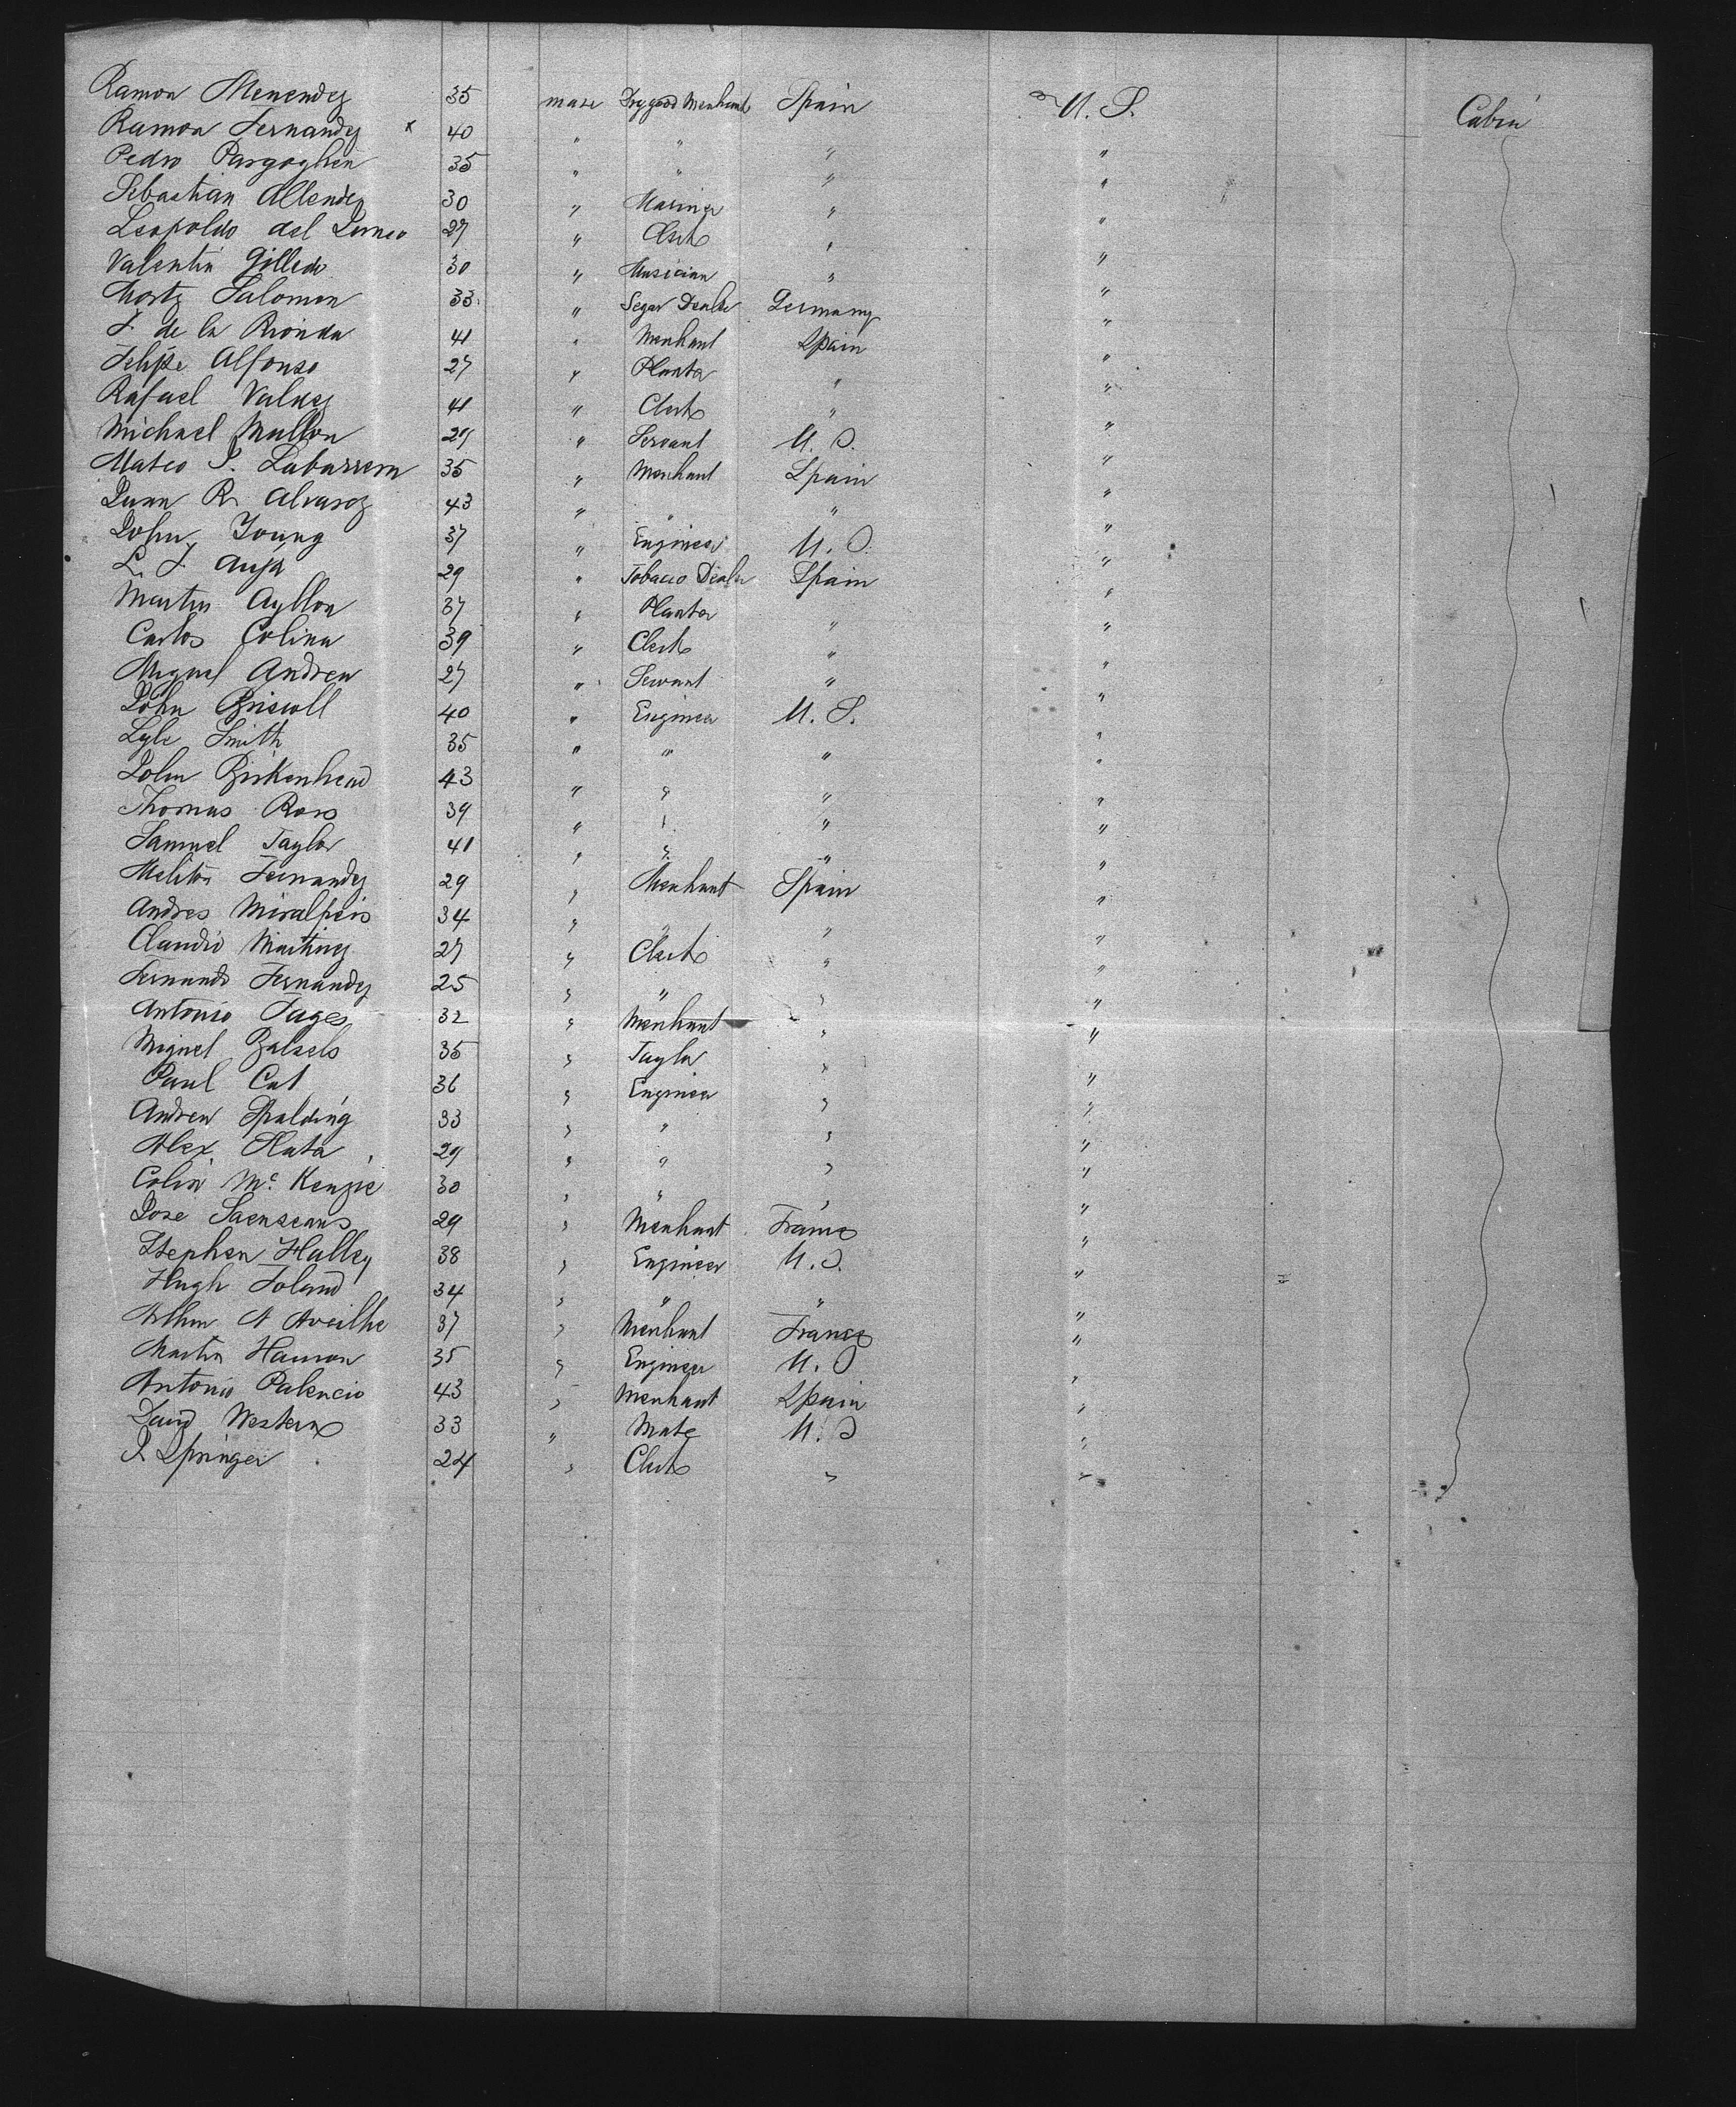 Ramon Menendez 35 male Dry good Merchant Spain U. S. Cabin
Ramon Fernandez x 40 " " " "
Pedro 35 " " " "
Sebastian Allende 30 " Mariner " "
Leopoldo del 27 " Clerk " "
Valentin Gilledo 30 " Musician " "
Moritz Salomon 33 " Segar Dealer Germany "
F. de la Rionda 41 " Merchant Spain "
Felipe Alfonso 27 " Planter " "
Rafael Valdez 41 " Clerk " "
Michael Mullon 29 " Servant U. S. "
Mateo S. 35 " Merchant Spain "
Juan R. Alvarez 43 " " " "
John Young 37 " Engineer U. S. "
L. F. 29 " Tobacco Dealer Spain "
Martin Ayllon 37 " Planter " "
Carlos Colina 39 " Clerk " "
Miguel Andreu 27 " Servant " "
John Briscoll 40 " Engineer U. S. "
Lyle Smith 35 " " " "
John Birkenhead 43 " " " "
Thomas Ross 39 " " " "
Samuel Taylor 41 " " " "
Meliton Fernandez 29 " Merchant Spain "
Andres Miralpeis 34 " " " "
Claudio Martinez 27 " Clerk " "
Fernando Fernandez 25 " " " "
Antonio Fages 32 " Merchant " "
Miguel Balsels 35 " Taylor " "
Paul Cat 36 " Engineer " "
Andrew Spalding 33 " " " "
Alex. 29 " " " "
Colin Mc. Kenzie 30 " " " "
Jose 29 " Merchant France "
Stephen Halley 38 " Engineer U. S. "
Hugh Toland 34 " " " "
Arthur A Aveilhe 37 " Merchant France "
Martin Hanson 35 " Engineer U. S "
Antonio Palencio 43 " Merchant Spain "
David Western 33 " Mate U. S "
J Springer 24 " Clerk " "